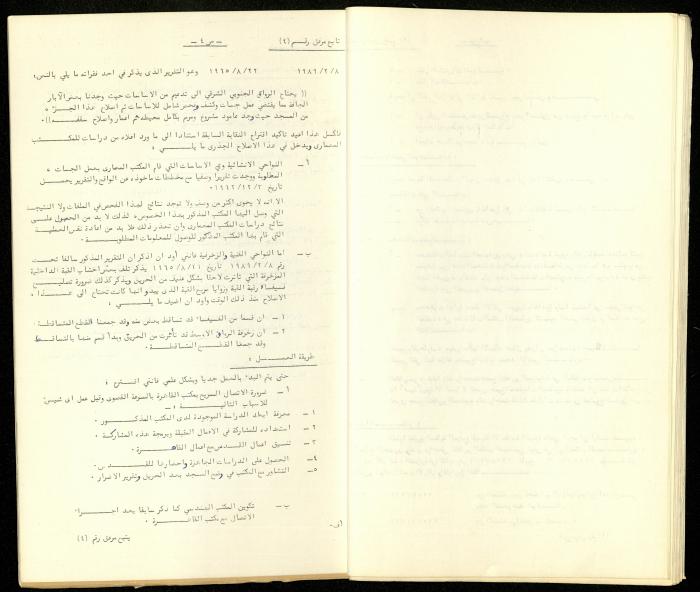 تابع مرفق رقم (٢) – ص ٤ –
١٩٨٦/٢/٨ ١٩٦٥/٨/٢٢ وهو التقرير الذى يذكر في احد فقراته ما يلي بالنص:
(( يحتاج الرواق الجنوبي الشرقي الى تدعيم من الاساسات حيث وجدنا بعض الآبار
الجافة مما يقتضي عمل جسات وكشف وفحص شامل للاساسات ثم اصلاح هذا الجزء
من المسجد حيث وجد عامود مشروخ ومرم بكامل محيطه ثم اعمار واصلاح سقفه )).
هذا اعيد تأكيد اقتراح النقابة السابقة استنادا الى ما ورد اعلاه من دراسات للمكتب
المعمارى ويدخل في هذا الاصلاح الجذرى ما يلي :
أ – النواحي الانشائية وهي الاساسات التي قام المكتب المعمارى بعمل الجسات
المطلوبة ووجدت تقريرا وصفيا مع مخططات مأخوذه عن الواقع والتقرير يحمل
تاريخ
الا انه لا يحوى اكثر من وصف ولا توجد نتائج لهذا الفحص في الملفات ولا النتيجة
التي وصل اليها المكتب المذكور بهذا الخصوص، لذلك لا بد من الحصول على
نتائج دراسات المكتب المعمارى وان تعذر ذلك فلا بد من اعادة نفس العملية
التي قام بها المكتب المذكور للوصول للمعلومات المطلوبة .
ب – اما النواحي الفنية والزخرفية فانني أود ان اذكر ان التقرير المذكور سالفا تحت
رقم ١٩٨٦/٢/٨ تاريخ ١٩٦٥/٨/١١ يذكر تلف بعض اخشاب القبة الداخلية
المزخرفة التي تأثرت لاحقا بشكل عنيف من الحريق ويذكر كذلك ضرورة تصليح
فسيفساء رقبة القبة وزوايا مربع القبة الذى يبدو انها كانت تحتاج الى هذا
الاصلاح منذ ذلك الوقت وأود ان اضيف ما يلي :
١ – ان قسما من الفسيفساء قد تساقط بعض منه وقد جمعنا القطع المتساقطة .
٢ – ان زخرفة الرواق الاوسط قد تأثرت من الحريق وبدأ قسم منها بالتساقط
وقد جمعنا القطع المتساقطة .
طريقة العمل :
حتى يتم البدء بالعمل جديا وبشكل علمي فانني اقترح :
أ – ضرورة الاتصال السريع بمكتب القاهرة بالسرعة القصوى وقبل عمل اى شيء
للاسباب التالية : –
١ – معرفة ابعاد الدراسة الموجودة لدى المكتب المذكور .
٢ – استعداده للمشاركة في الاعمال المقبلة وبرمجة هذه المشاركة .
٣ – تنسيق اعمال القدس مع اعمال القاهرة .
٤ – الحصول على الدراسات الجاهزة واحضارها للقدس .
٥ – التشاور مع المكتب في وضع المسجد بعد الحريق وتقرير الاضرار .
ب – تكوين المكتب الهندسي كما ذكر سابقا بعد اجراء
الاتصال مع مكتب القاهرة .
يتبع مرفق رقم (٤)